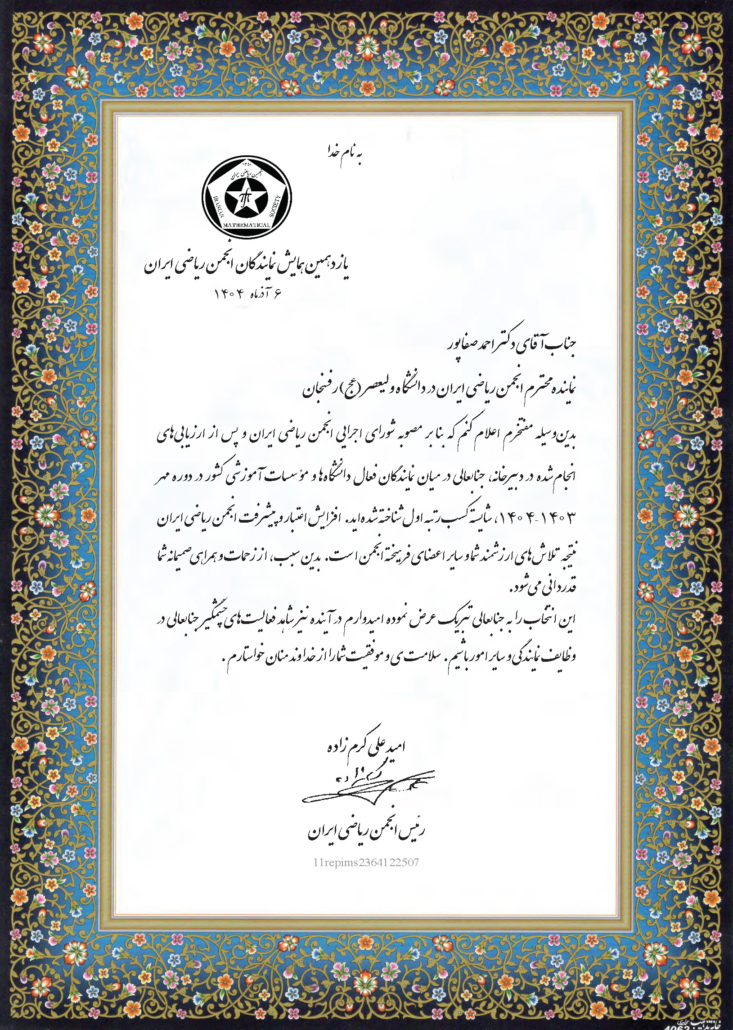 به نام خدا
انجمن ریاضی ایران
IRANIAN MATHEMATICAL SOCIETY
یازدهمین همایش نمایندگان انجمن ریاضی ایران
۶ آذرماه ۱۴۰۴
جناب آقای دکتر احمد صفاپور
نماینده محترم انجمن ریاضی ایران در دانشگاه ولیعصر (عج) رفسنجان
بدین‌وسیله مفتخرم اعلام کنم که بنابر مصوبه شورای اجرایی انجمن ریاضی ایران و پس از ارزیابی‌های
انجام شده در دبیرخانه، جنابعالی در میان نمایندگان فعال دانشگاه‌ها و مؤسسات آموزشی کشور در دوره مهر
۱۴۰۳-۱۴۰۴، شایسته کسب رتبه اول شناخته شده‌اید. افزایش اعتبار و پیشرفت انجمن ریاضی ایران
نتیجه تلاش‌های ارزشمند شما و سایر اعضای فرهیخته انجمن است. بدین سبب، از زحمات و همراهی صمیمانه شما
قدردانی می‌شود.
این انتخاب را به جنابعالی تبریک عرض نموده امیدوارم در آینده نیز شاهد فعالیت‌های چشمگیر جنابعالی در
وظایف نمایندگی و سایر امور باشیم. سلامت ی و موفقیت شما را از خداوند منان خواستارم.
امید علی کرم زاده
رئیس انجمن ریاضی ایران
11repims2364122507